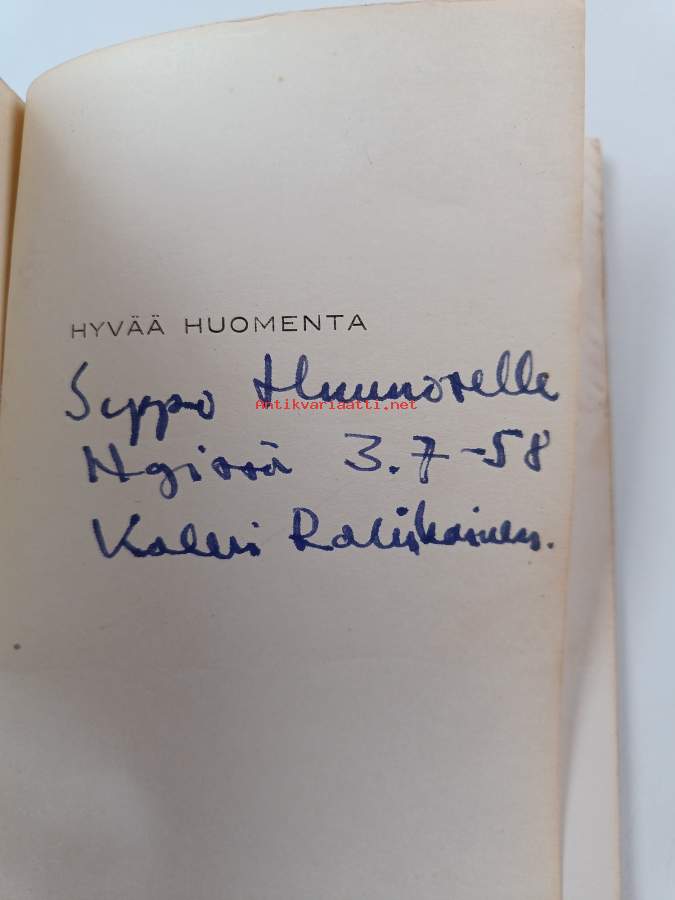 HYVÄÄ HUOMENTA
Seppo
Antikvariaatti.net
Hgissä 3.7-58
Kalevi